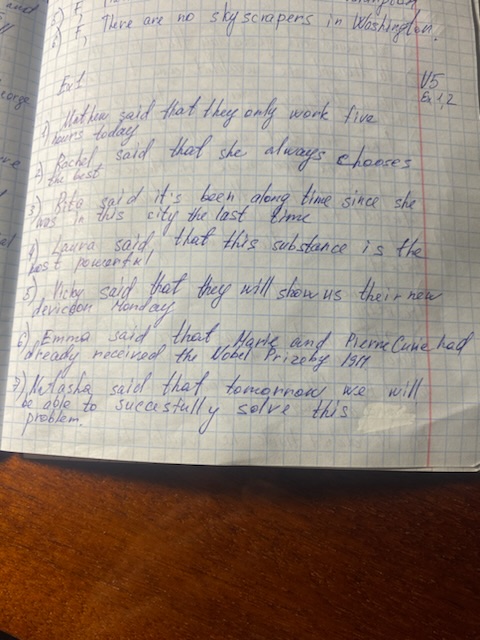 5) F,
6) F, There are no skyscrapers in Washington.
Ex 1
V5
Ex. 1,2
1) Mathew said that they only work five
hours today
2) Rachel said that she always chooses
the best
3) Rita said it's been along time since she
was in this city the last time
4) Laura said that this substance is the
most powerful
5) Vicky said that they will show us their new
device on Monday
6) Emma said that Marie and Pierre Curie had
already received the Nobel Prize by 1911
7) Natasha said that tomorrow we will
be able to succesfully solve this
problem.